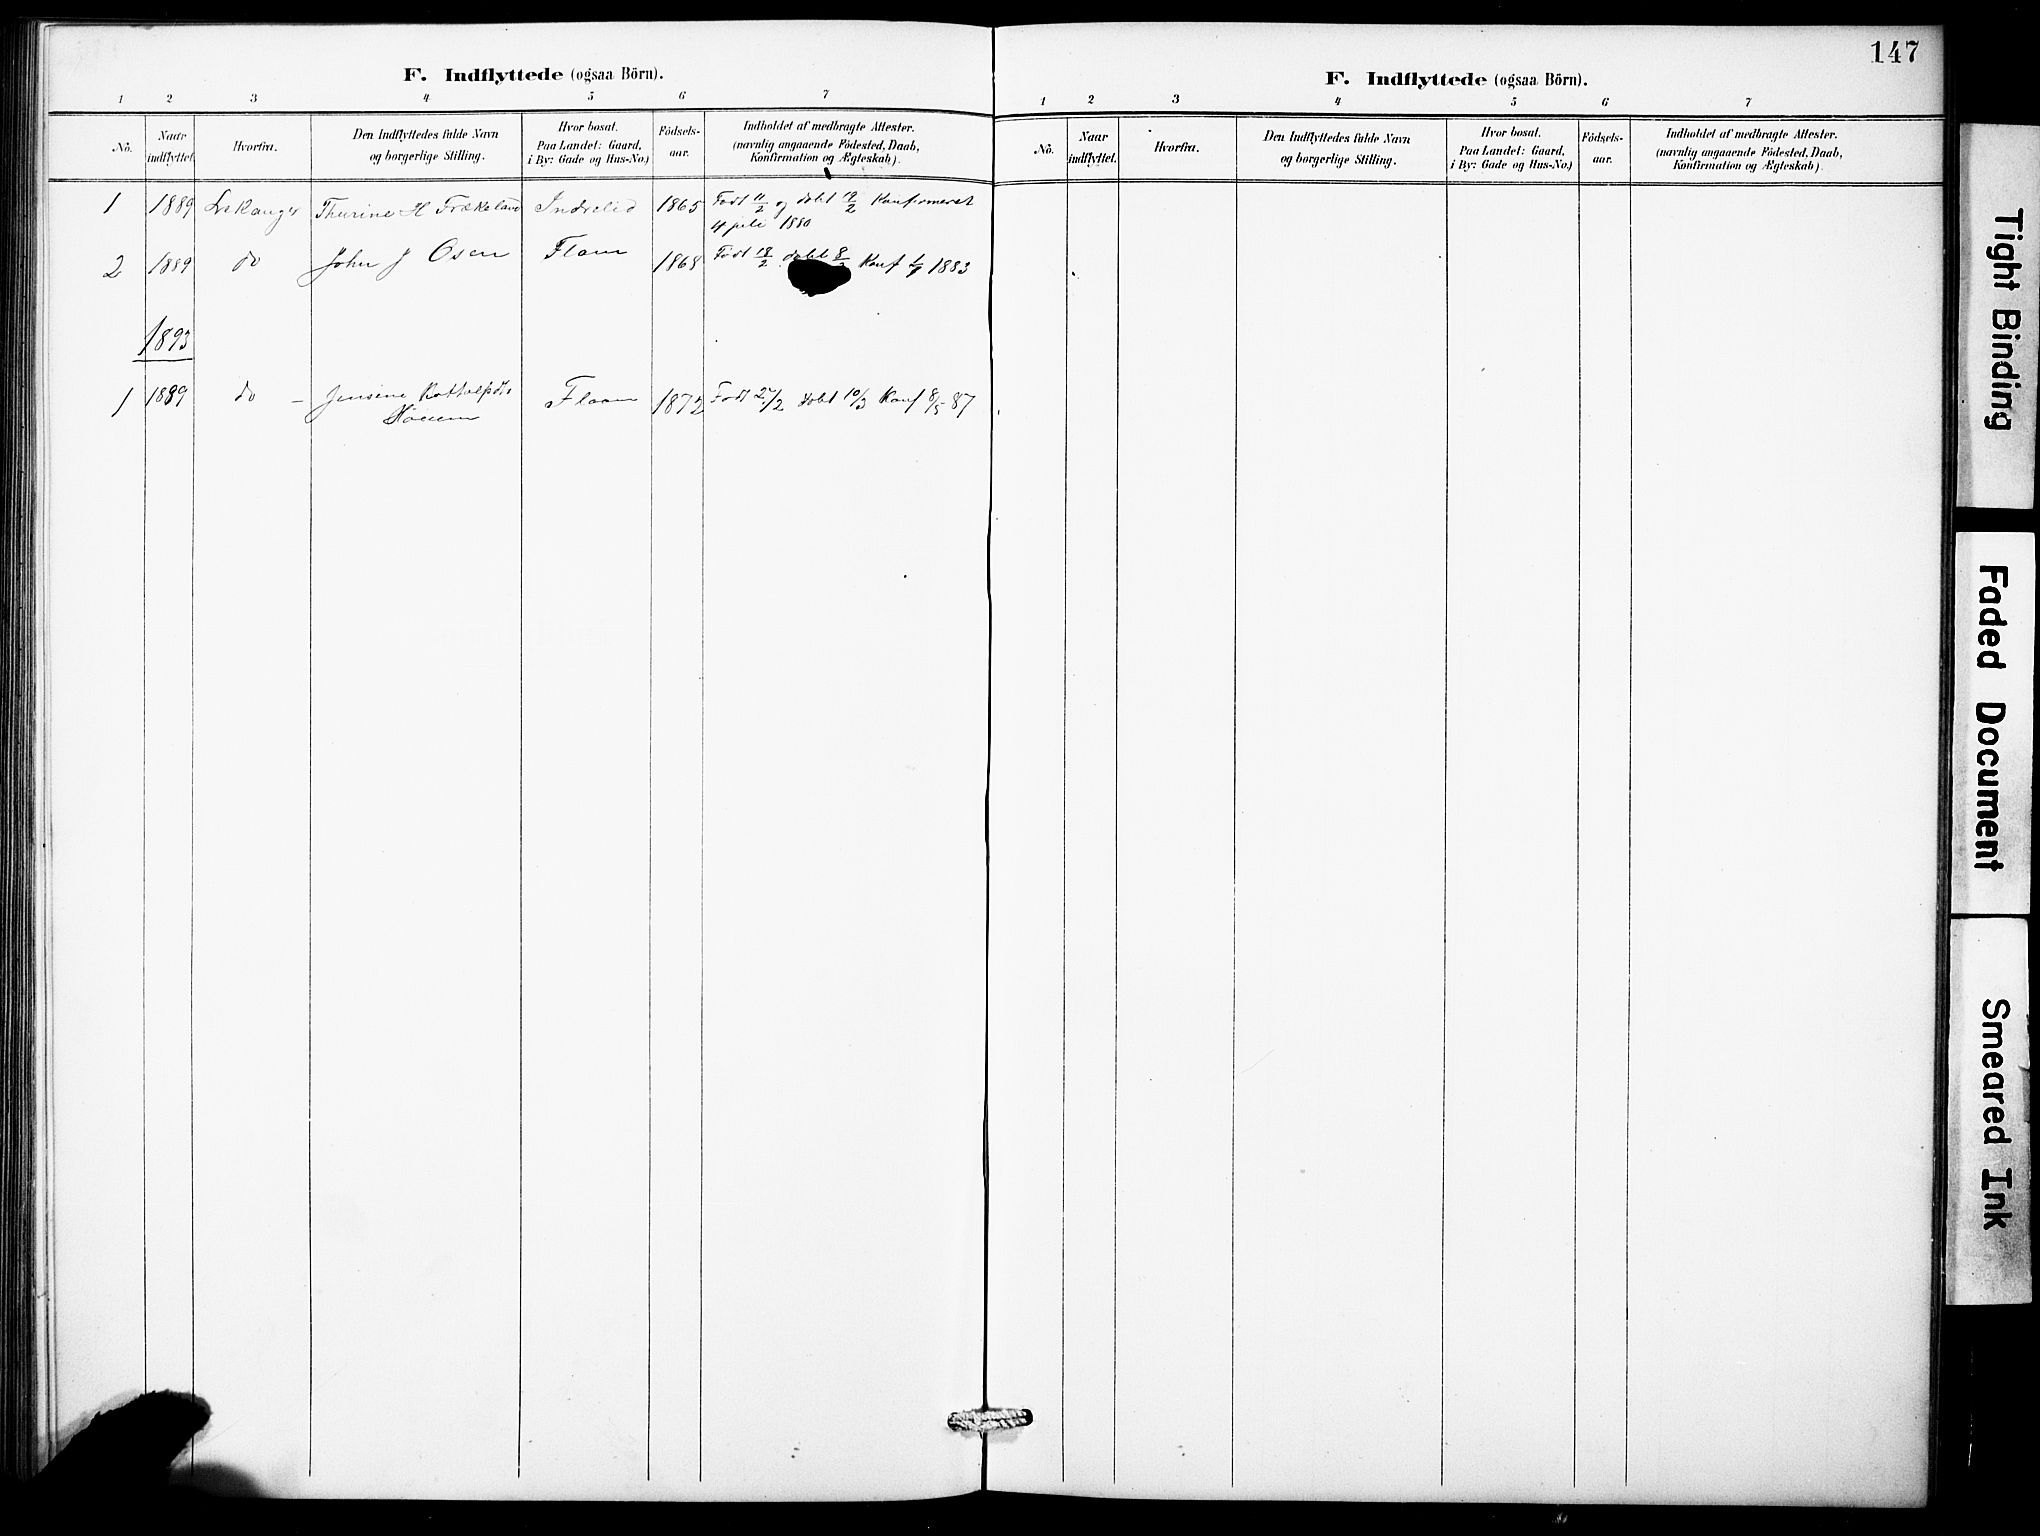 F. Indflyttede (ogsaa Börn).
1 2 3 4 5 6 7
No.
Naar indflyttet.
Hvorfra.
Den Indflyttedes fulde Navn
og borgerlige Stilling.
Hvor bosat.
Paa Landet: Gaard,
i By: Gade og Hus-No.)
Födsels-
aar.
Indholdet af medbragte Attester.
(navnlig angaaende Födested, Daab,
Konfirmation og Ægteskab).
1 1889 Lekanger Thurine H Frækaland Indrelid 1865 Født 11/2 og døbt 19/2 Konfirmeret
4 juli 1880
2 1889 do John J Osen Flaam 1868 Født 18/2 døbt 8/3 Konf 1/7 1883
1893
1 1889 do – Jensine
Flaam 1872 Født 27/2 døbt 10/3 Konf 8/5 87
147
F. Indflyttede (ogsaa Börn).
1 2 3 4 5 6 7
No.
Naar
indflyttet.
Hvorfra.
Den Indflyttedes fulde Navn
og borgerlige Stilling.
Hvor bosat.
Paa Landet: Gaard,
i By: Gade og Hus-No.)
Födsels-
aar.
Indholdet af medbragte Attester.
(navnlig angaaende Födested, Daab,
Konfirmation og Ægteskab).
Tight Binding
Faded Document
Smeared Ink